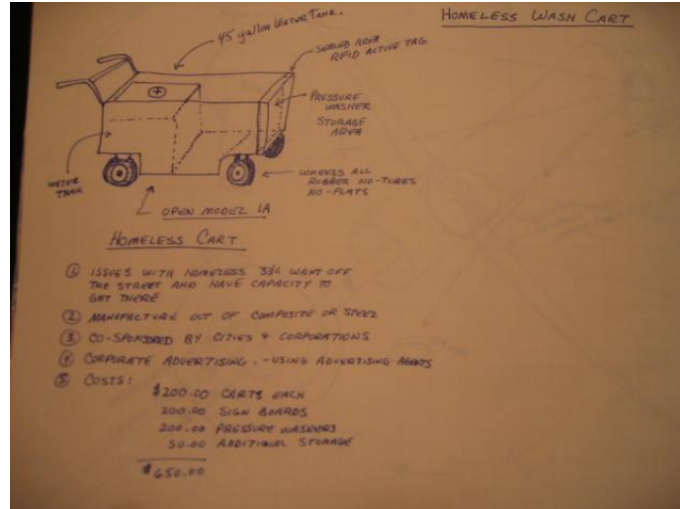 HOMELESS WASH CART
45 gallon WATER TANK.
SEALED AREA
RFID ACTIVE TAG.
PRESSURE
WASHER
STORAGE
AREA
WATER
TANK
WHEELS ALL
RUBBER NO-TUBES
NO-FLATS
OPEN MODEL 1A
HOMELESS CART
① ISSUES WITH HOMELESS 33% WANT OFF
THE STREET AND HAVE CAPACITY TO
GET THERE
② MANUFACTURE OUT OF COMPOSITE OR STEEL
③ CO-SPONSORED BY CITIES & CORPORATIONS
④ CORPORATE ADVERTISING. - USING ADVERTISING AGENTS
⑤ COSTS:
$200.00 CARTS EACH
200.00 SIGN BOARDS
200.00 PRESSURE WASHERS
50.00 ADDITIONAL STORAGE
$650.00